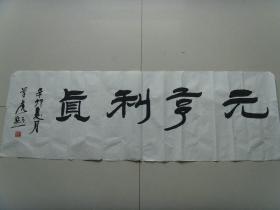 元亨利貞
辛卯夏月